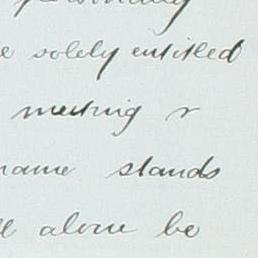 e solely entitled
meeting &
name stands
ll alone be